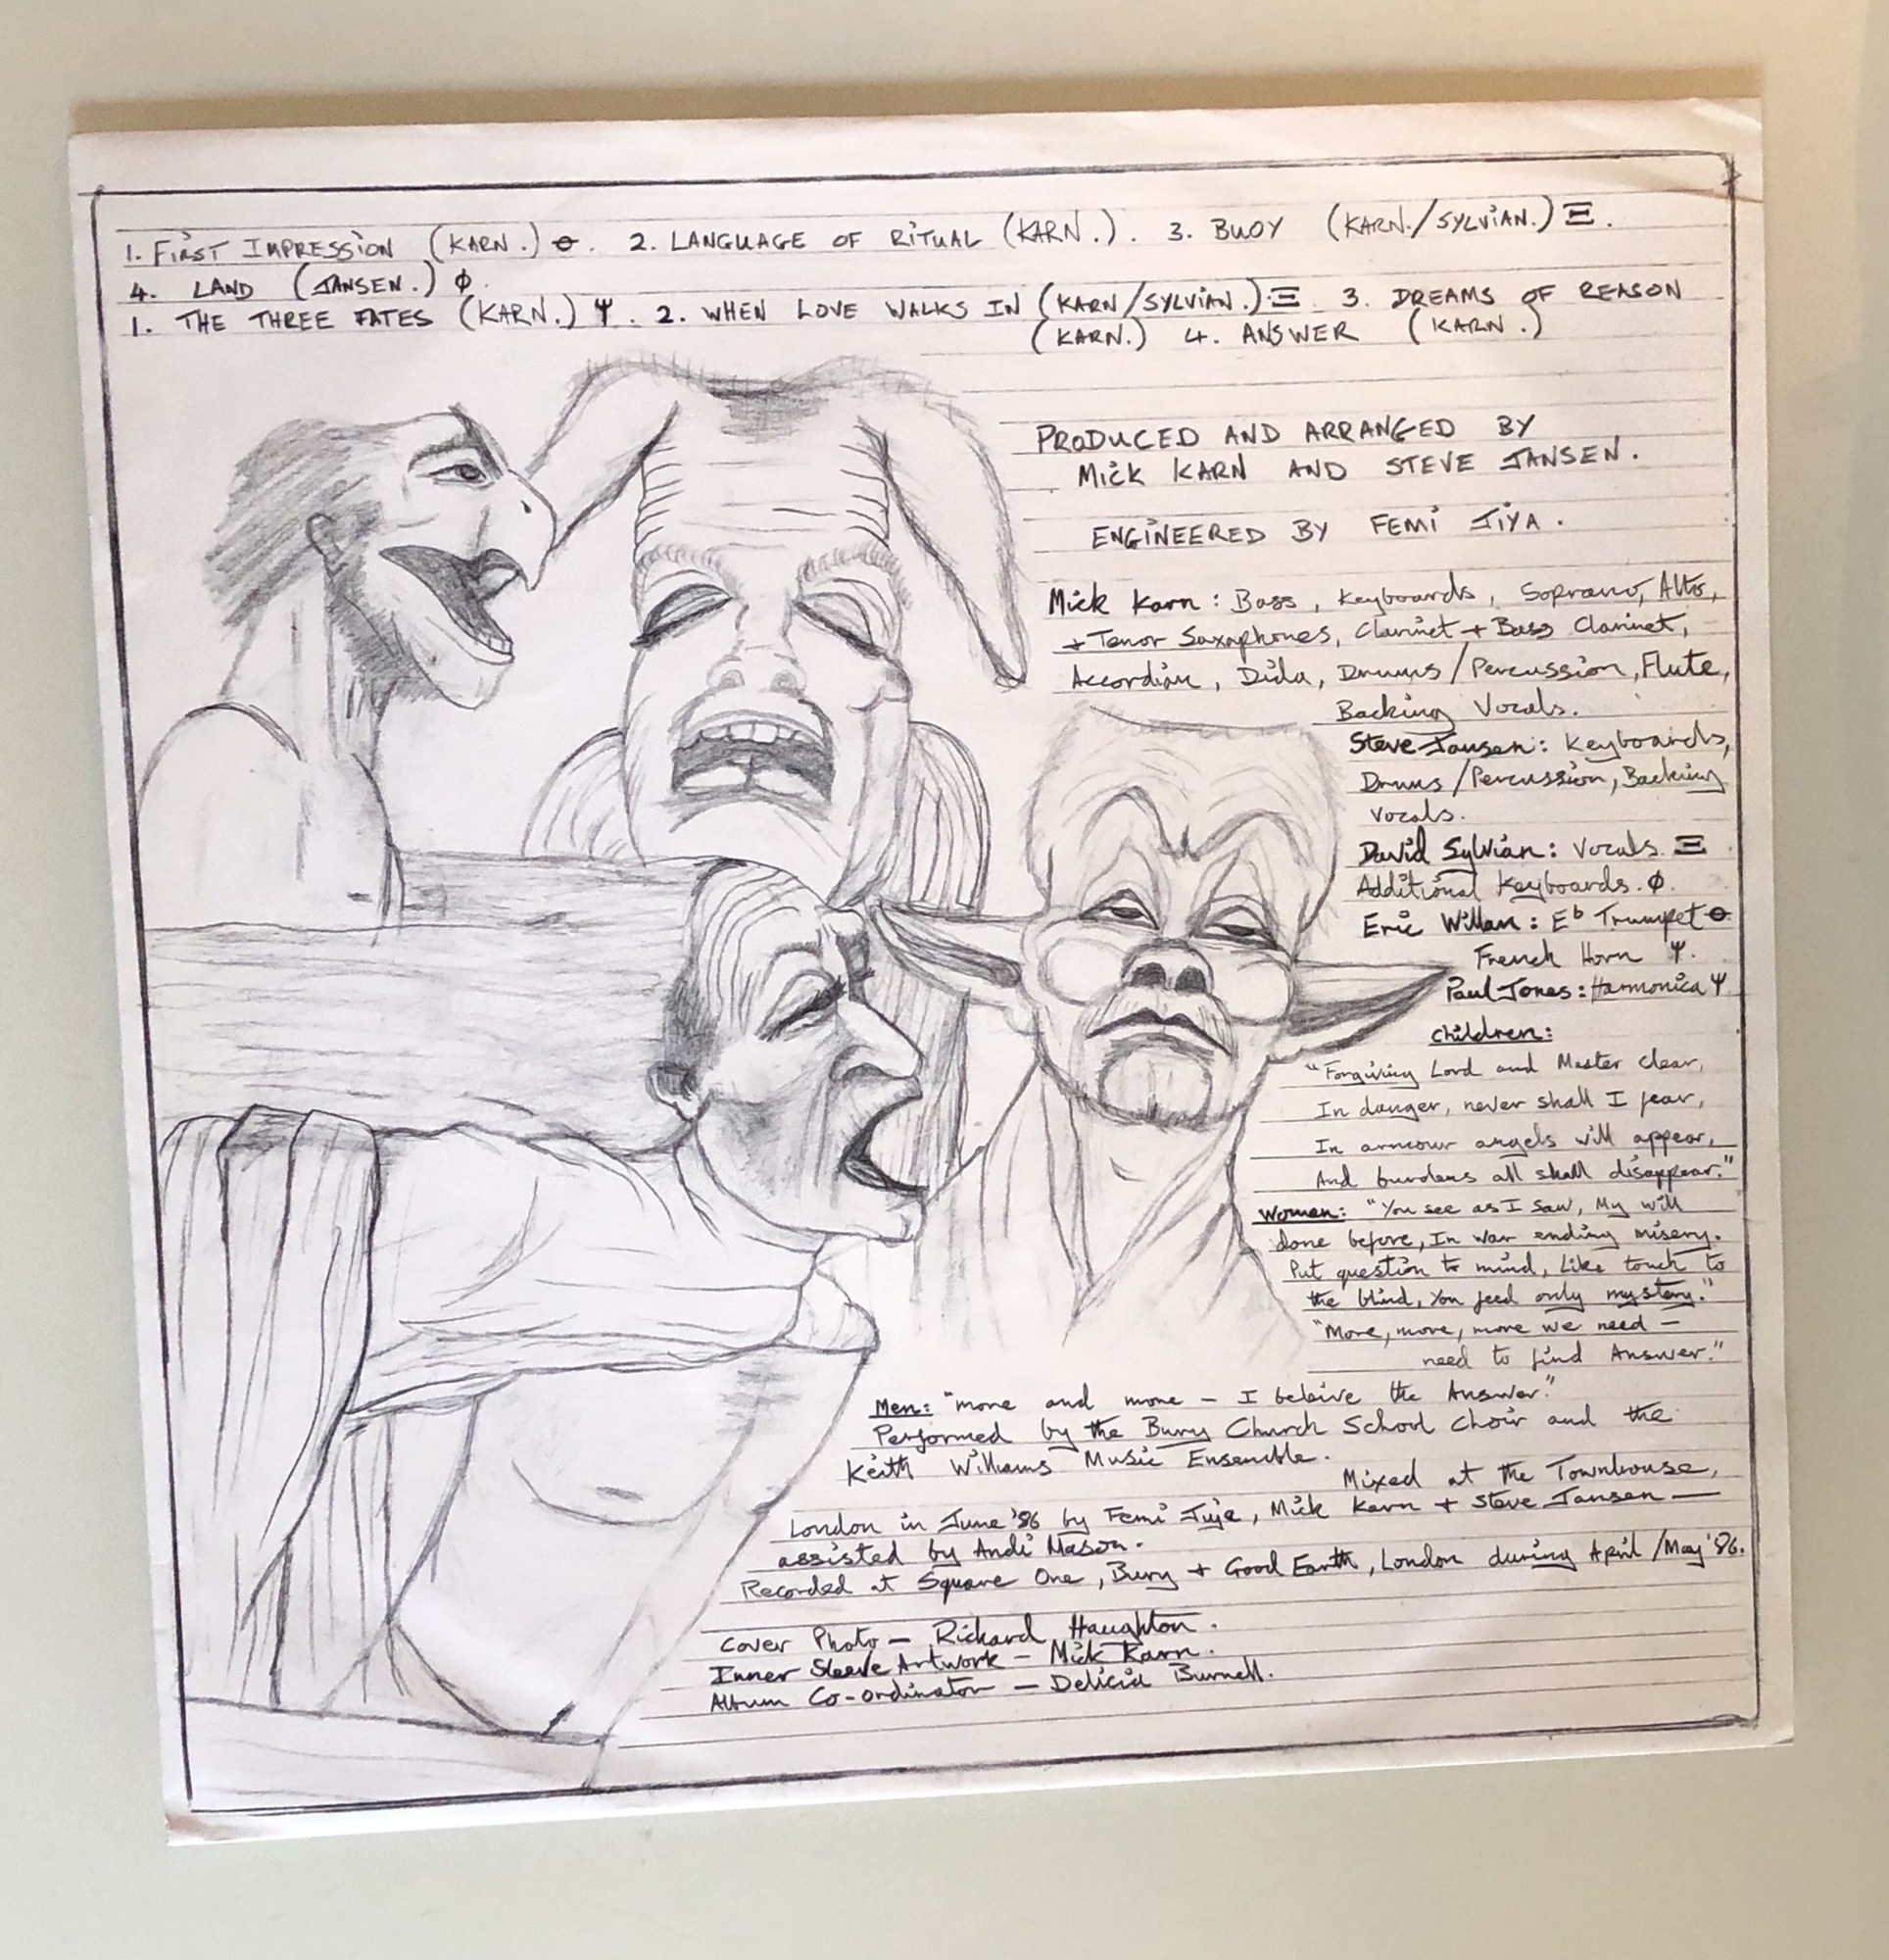 1. FIRST IMPRESSION (KARN.) ⊖. 2. LANGUAGE OF RITUAL (KARN.). 3. BUOY (KARN./SYLVIAN.) Ξ.
4. LAND (JANSEN.) ϕ.
1. THE THREE FATES (KARN.) Ψ. 2. WHEN LOVE WALKS IN (KARN/SYLVIAN.) Ξ 3. DREAMS OF REASON
(KARN.) 4. ANSWER (KARN.)
PRODUCED AND ARRANGED BY
MICK KARN AND STEVE JANSEN.
ENGINEERED BY FEMI JIYA.
Mick Karn: Bass, Keyboards, Soprano, Alto,
+ Tenor Saxaphones, Clarinet + Bass Clarinet,
Accordian, Dida, Drums/Percussion, Flute,
Backing Vocals.
Steve Jansen: Keyboards,
Drums/Percussion, Backing
Vocals.
David Sylvian: Vocals Ξ
Additional Keyboards. ϕ.
Eric Willan: E♭ Trumpet ⊖
French Horn Ψ.
Paul Jones: Harmonica Ψ
Children:
"Forgiving Lord and Master clear,
In danger, never shall I fear,
In armour angels will appear,
And burdens all shall disappear."
Women: "You see as I saw, My will
done before, In war ending misery.
Put question to mind, Like touch to
the blind, You feed only mystery."
"More, more, more we need -
need to find Answer."
Men: "more and more - I beleive the Answer."
Performed by the Bury Church School Choir and the
Keith Williams Music Ensemble.
Mixed at the Townhouse,
London in June '86 by Femi Jiya, Mick Karn + Steve Jansen —
assisted by Andi Mason.
Recorded at Square One, Bury + Good Earth, London during April/May '86.
Cover Photo — Richard Haughton.
Inner Sleeve Artwork — Mick Karn.
Album Co-ordinator — Delicia Burnell.